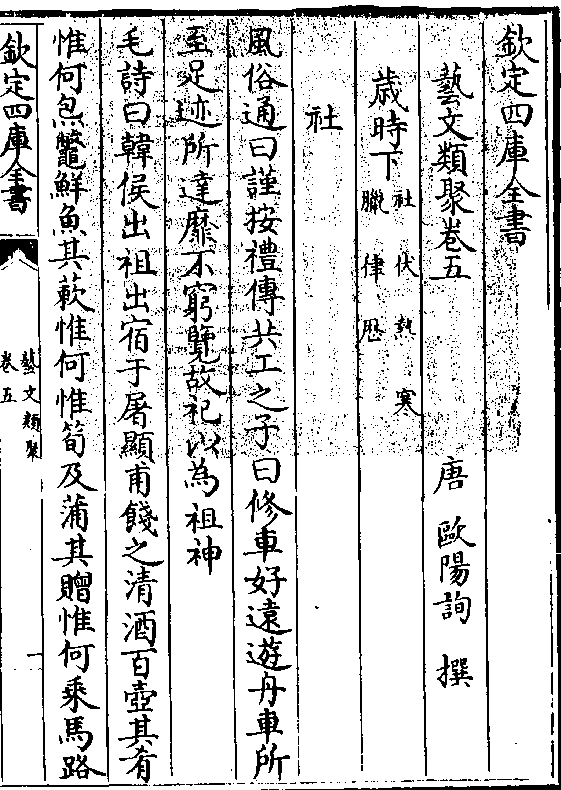 欽定四庫全書
藝文類聚卷五
唐 歐陽詢 撰
歲時下 社 伏 熱 寒
臘 律 厯
社
風俗通曰謹按禮傳共工之子曰修車好遠遊舟車所
至足迹所達靡不窮覽故祀以為祖神
毛詩曰韓侯出祖出宿于屠顯甫餞之清酒百壺其肴
惟何炰鼈鮮魚其蔌惟何惟筍及蒲其贈惟何乘馬路
欽定四庫全書
藝文類聚
卷五
一